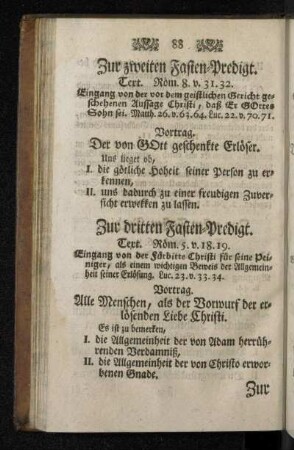 88
Zur zweiten Fasten-Predigt.
Text. Röm. 8. v. 31. 32.
Eingang von der vor dem geistlichen Gericht ge-
schehenen Aussage Christi, daß Er GOttes
Sohn sei. Math. 26. v. 63. 64. Luc. 22. v. 70. 71.
Vortrag.
Der von GOtt geschenkte Erlöser.
Uns lieget ob,
I. die götliche Hoheit seiner Person zu er-
kennen,
II. uns dadurch zu einer freudigen Zuver-
sicht erwekken zu lassen.
Zur dritten Fasten-Predigt.
Text. Röm. 5. v. 18. 19.
Eingang von der Förbitte Christi für seine Pei-
niger, als einem wichtigen Beweis der Allgemein-
heit seiner Erlösung. Luc. 23. v. 33. 34.
Vortrag.
Alle Menschen, als der Vorwurf der er-
lösenden Liebe Christi.
Es ist zu bemerken,
I. die Allgemeinheit der von Adam herrüh-
renden Verdamniß,
II. die Allgemeinheit der von Christo erwor-
benen Gnade.
Zur